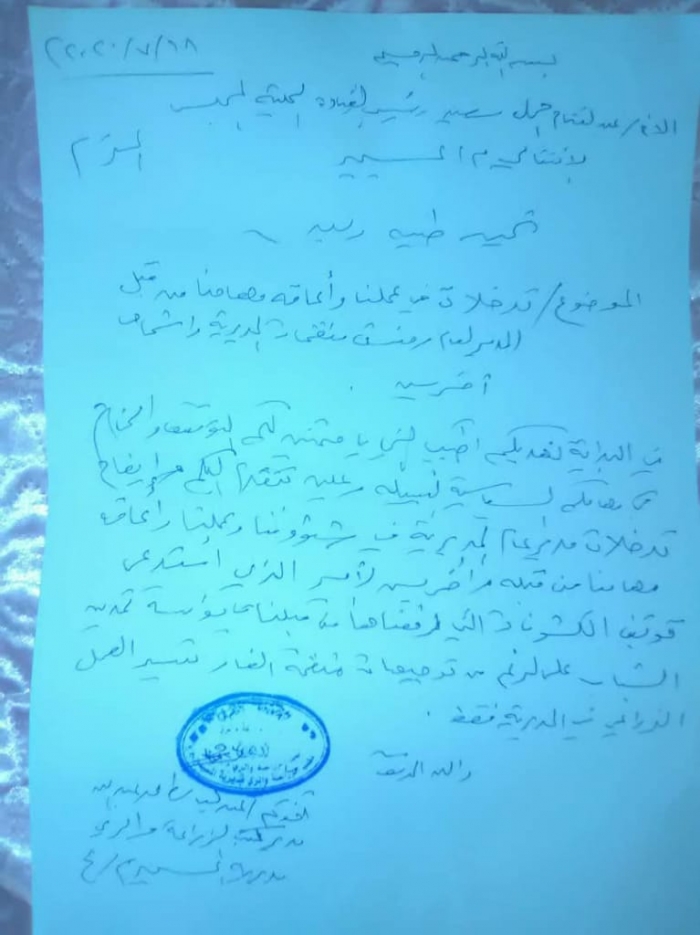 بسم الله الرحمن الرحيم
٢٠٢٠/٧/٢٨م
الاخ/ عبدالفتاح رئيس القيادة المحلية للمجلس
الإنتقالي م/ المسيمير المحترم
تحية طيبة وبعد
الموضوع/ تدخلات في عملنا وأعاقة مهامنا من قبل
المدير العام ومنسق منظمات المديرية واشخاص
آخرين .
في البداية نهديكم أطيب التحايا متمنين لكم التوفيق والنجاح
في مهامكم السياسية النبيلة وعليه نتقدم اليكم بإيضاح
تدخلات مدير عام المديرية في شؤوننا وعملنا وأعاقة
مهامنا من قبله وآخرين الأمر الذي استدعى
توقيف الكشوفات التي رفعناها من قبلنا بمؤسسة تمدين
الشباب على الرغم من توجيهات منظمة الفاو تسيير العمل
الزراعي في المديرية فقط .
والله الموفق
مدير مكتب الزراعة والري
مديرية المسيمير م/ لحج